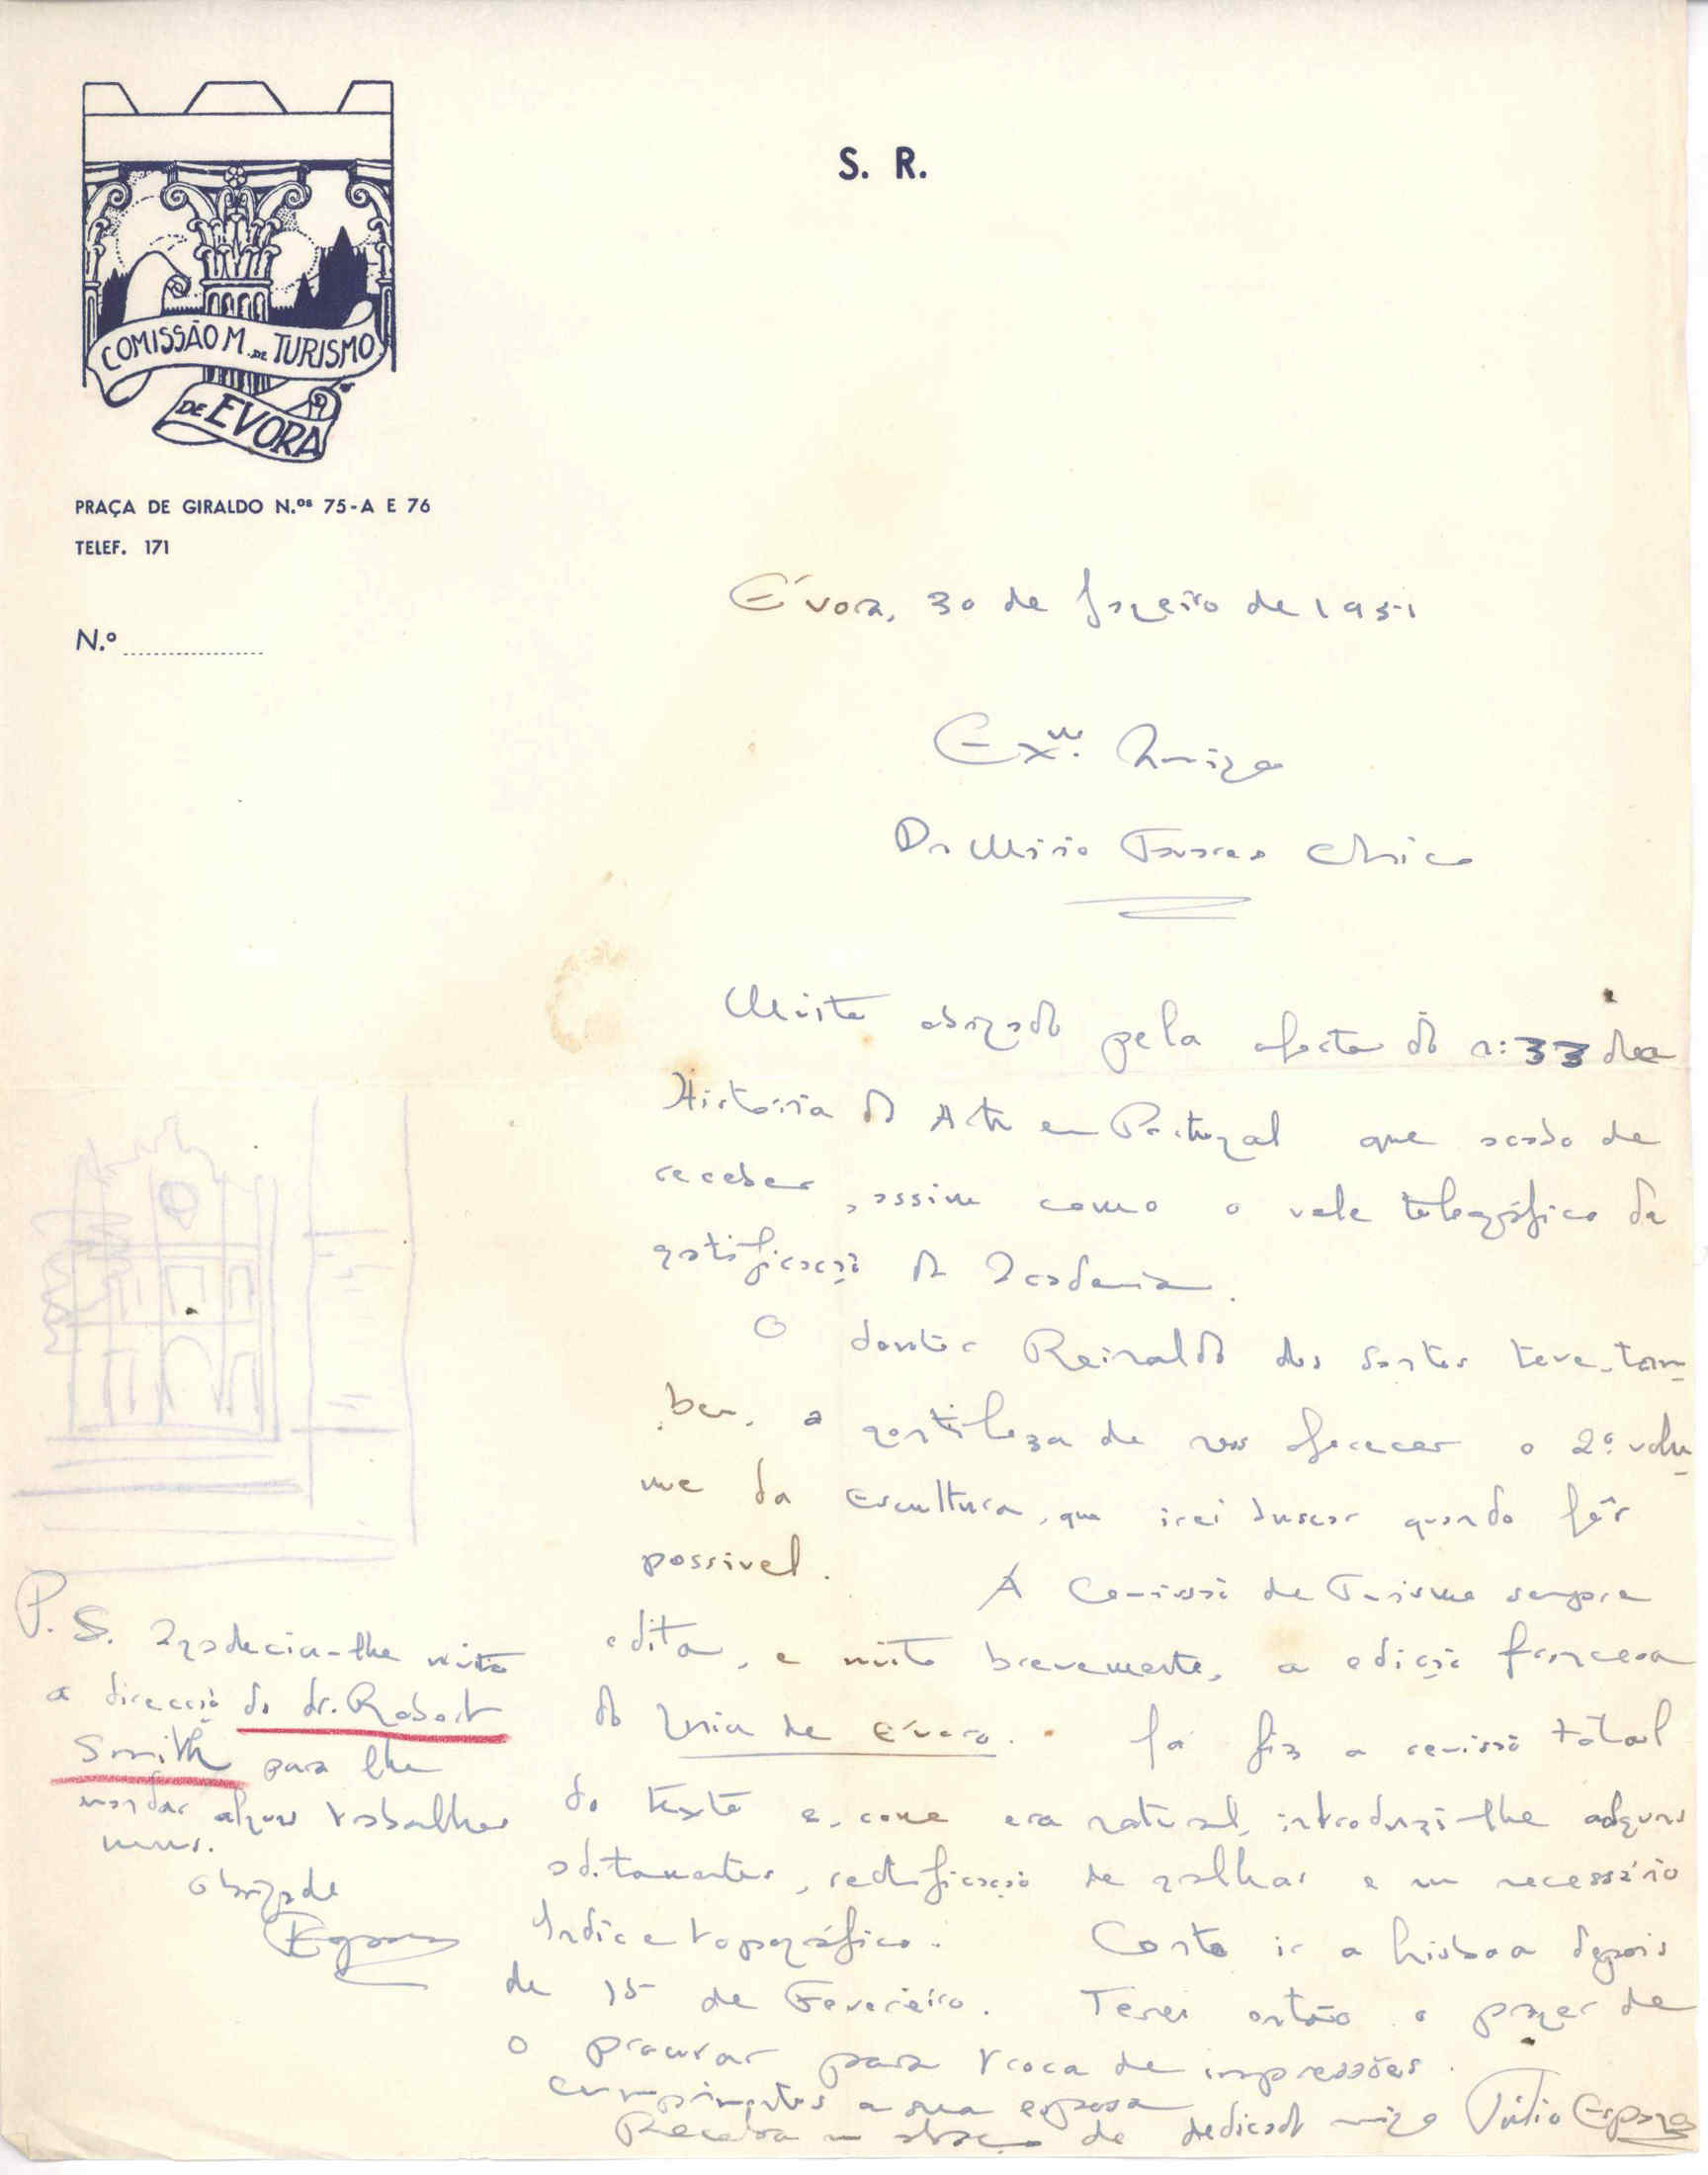 COMISSÃO M. DE TURISMO
DE EVORA
S. R.
PRAÇA DE GIRALDO N.ºˢ 75-A E 76
TELEF. 171
N.º
Évora, 30 de Janeiro de 1951
Exᵐᵒ. Amigo
Dr Mário Tavares Chico
Muito obrigado pela oferta do n.: 33 da
História da Arte em Portugal que acabo de
receber, assim como o vale telegráfico da
gratificação da Academia.
O doutor Reinaldo dos Santos teve, tam-
bem, a gentileza de nos oferecer o 2.º volu-
me da Escultura, que irei buscar quando fôr
possivel. A Comissão de Turismo sempre
edita, e muito brevemente, a edição francesa
do Guia de Évora. Já fiz a revisão total
do texto e, como era natural, introduzi-lhe alguns
aditamentos, rectificação de gralhas e um necessário
Indice topográfico. Conto ir a Lisboa depois
de 15 de Fevereiro. Terei então o prazer de
o procurar para troca de impressões.
Cumprimentos a sua esposa
Receba um abraço do dedicado amigo Túlio Espanca
P. S. Agradecia-lhe muito
a direcção do dr. Robert
Smith para lhe
mandar alguns trabalhos
meus.
Obrigado
Espanca